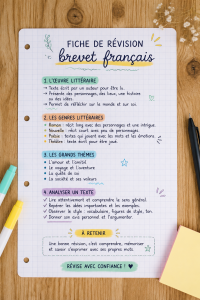 FICHE DE RÉVISION
brevet français
1. L'ŒUVRE LITTÉRAIRE
→ Texte écrit par un auteur pour être lu.
→ Présente des personnages, des lieux, une histoire
ou des idées.
→ Permet de réfléchir sur le monde et sur soi.
2. LES GENRES LITTÉRAIRES
• Roman : récit long avec des personnages et une intrigue.
• Nouvelle : récit court avec peu de personnages.
• Poésie : textes qui jouent avec les mots et les émotions.
• Théâtre : texte écrit pour être joué.
3. LES GRANDS THÈMES
• L'amour et l'amitié
• Le voyage et l'aventure
• La quête de soi
• La société et ses valeurs
4. ANALYSER UN TEXTE
✓ Lire attentivement et comprendre le sens général.
✓ Repérer les idées importantes et les exemples.
✓ Observer le style : vocabulaire, figures de style, ton.
✓ Donner son avis personnel et l'argumenter.
À RETENIR
Une bonne révision, c'est comprendre, mémoriser
et savoir s'exprimer avec ses propres mots.
RÉVISE AVEC CONFIANCE !